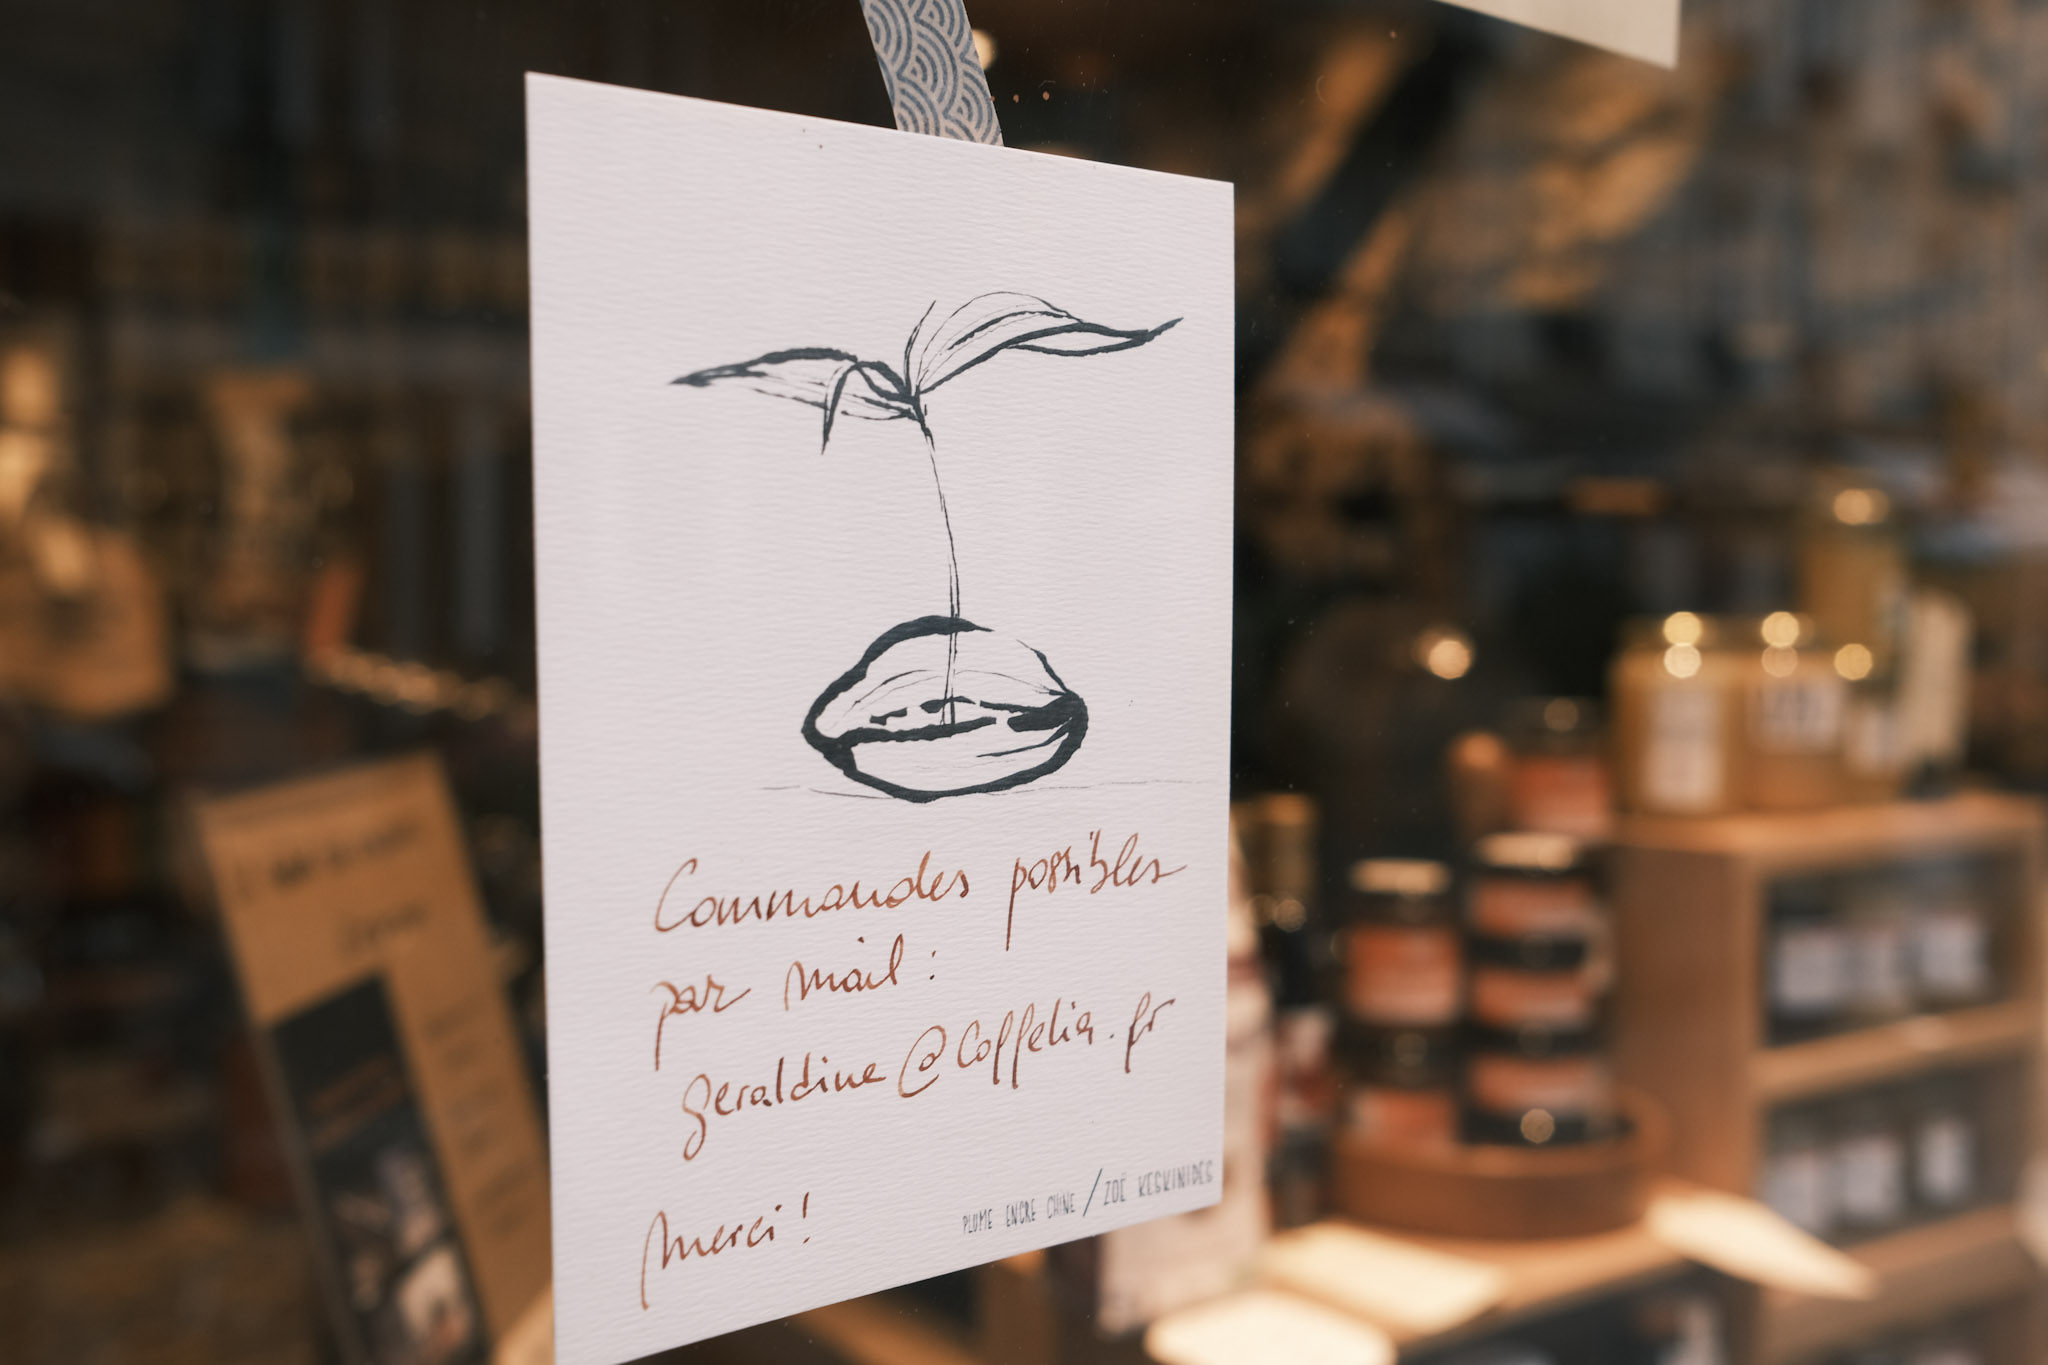 Commandes possibles
par mail :
geraldine@Coffelia.fr
Merci !
PLUME ENCRE CHINE / ZOË KESKINIDES